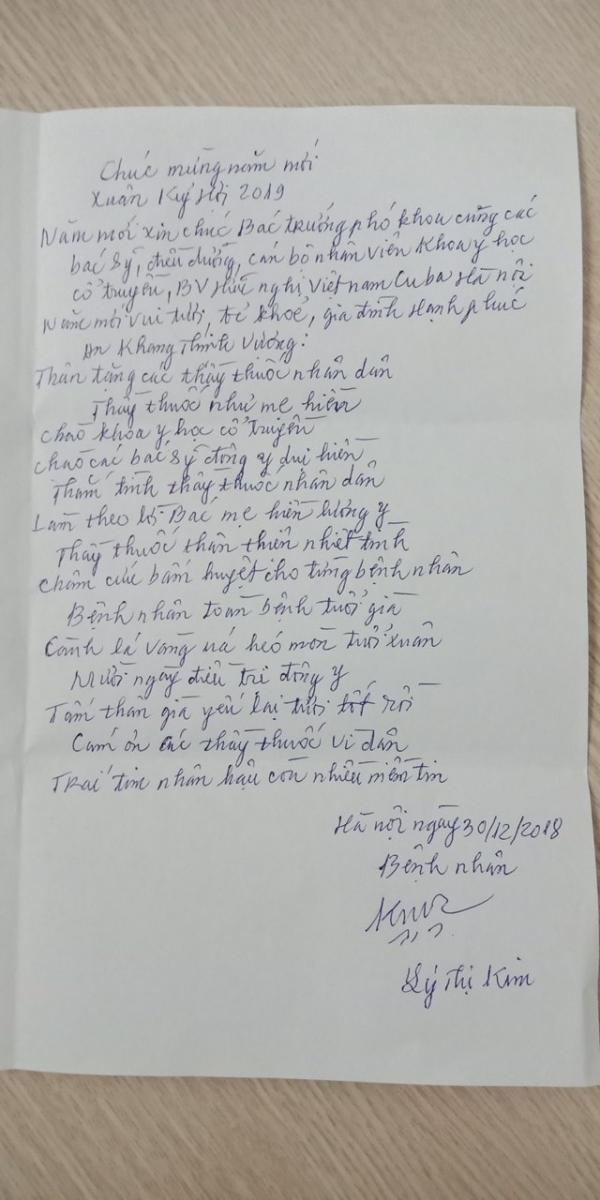 Chúc mừng năm mới
Xuân Kỷ Hợi 2019
Năm mới xin chúc Bác trưởng phó khoa cùng các
bác sỹ, điều dưỡng, cán bộ nhân viên Khoa y học
cổ truyền, BV Hữu nghị Việt nam Cu ba Hà nội
Năm mới vui tươi, trẻ khoẻ, gia đình Hạnh phúc
An Khang Thịnh Vượng:
Thân tặng các thầy thuốc nhân dân
Thầy thuốc như mẹ hiền
chào khoa y học cổ truyền
chào các bác sỹ đông y dịu hiền
Thắm tình thầy thuốc nhân dân
Làm theo lời Bác mẹ hiền lương y
Thầy thuốc thân thiện nhiệt tình
châm cứu bấm huyệt cho từng bệnh nhân
Bệnh nhân toàn bệnh tuổi già
Cành lá vàng úa héo mòn tuổi xuân
Mười ngày điều trị đông y
Tấm thân già yếu lại tươi tốt rồi
Cám ơn các thầy thuốc vì dân
Trái tim nhân hậu còn nhiều niềm tin
Hà nội ngày 30/12/2018
Bệnh nhân
Lý Thị Kim